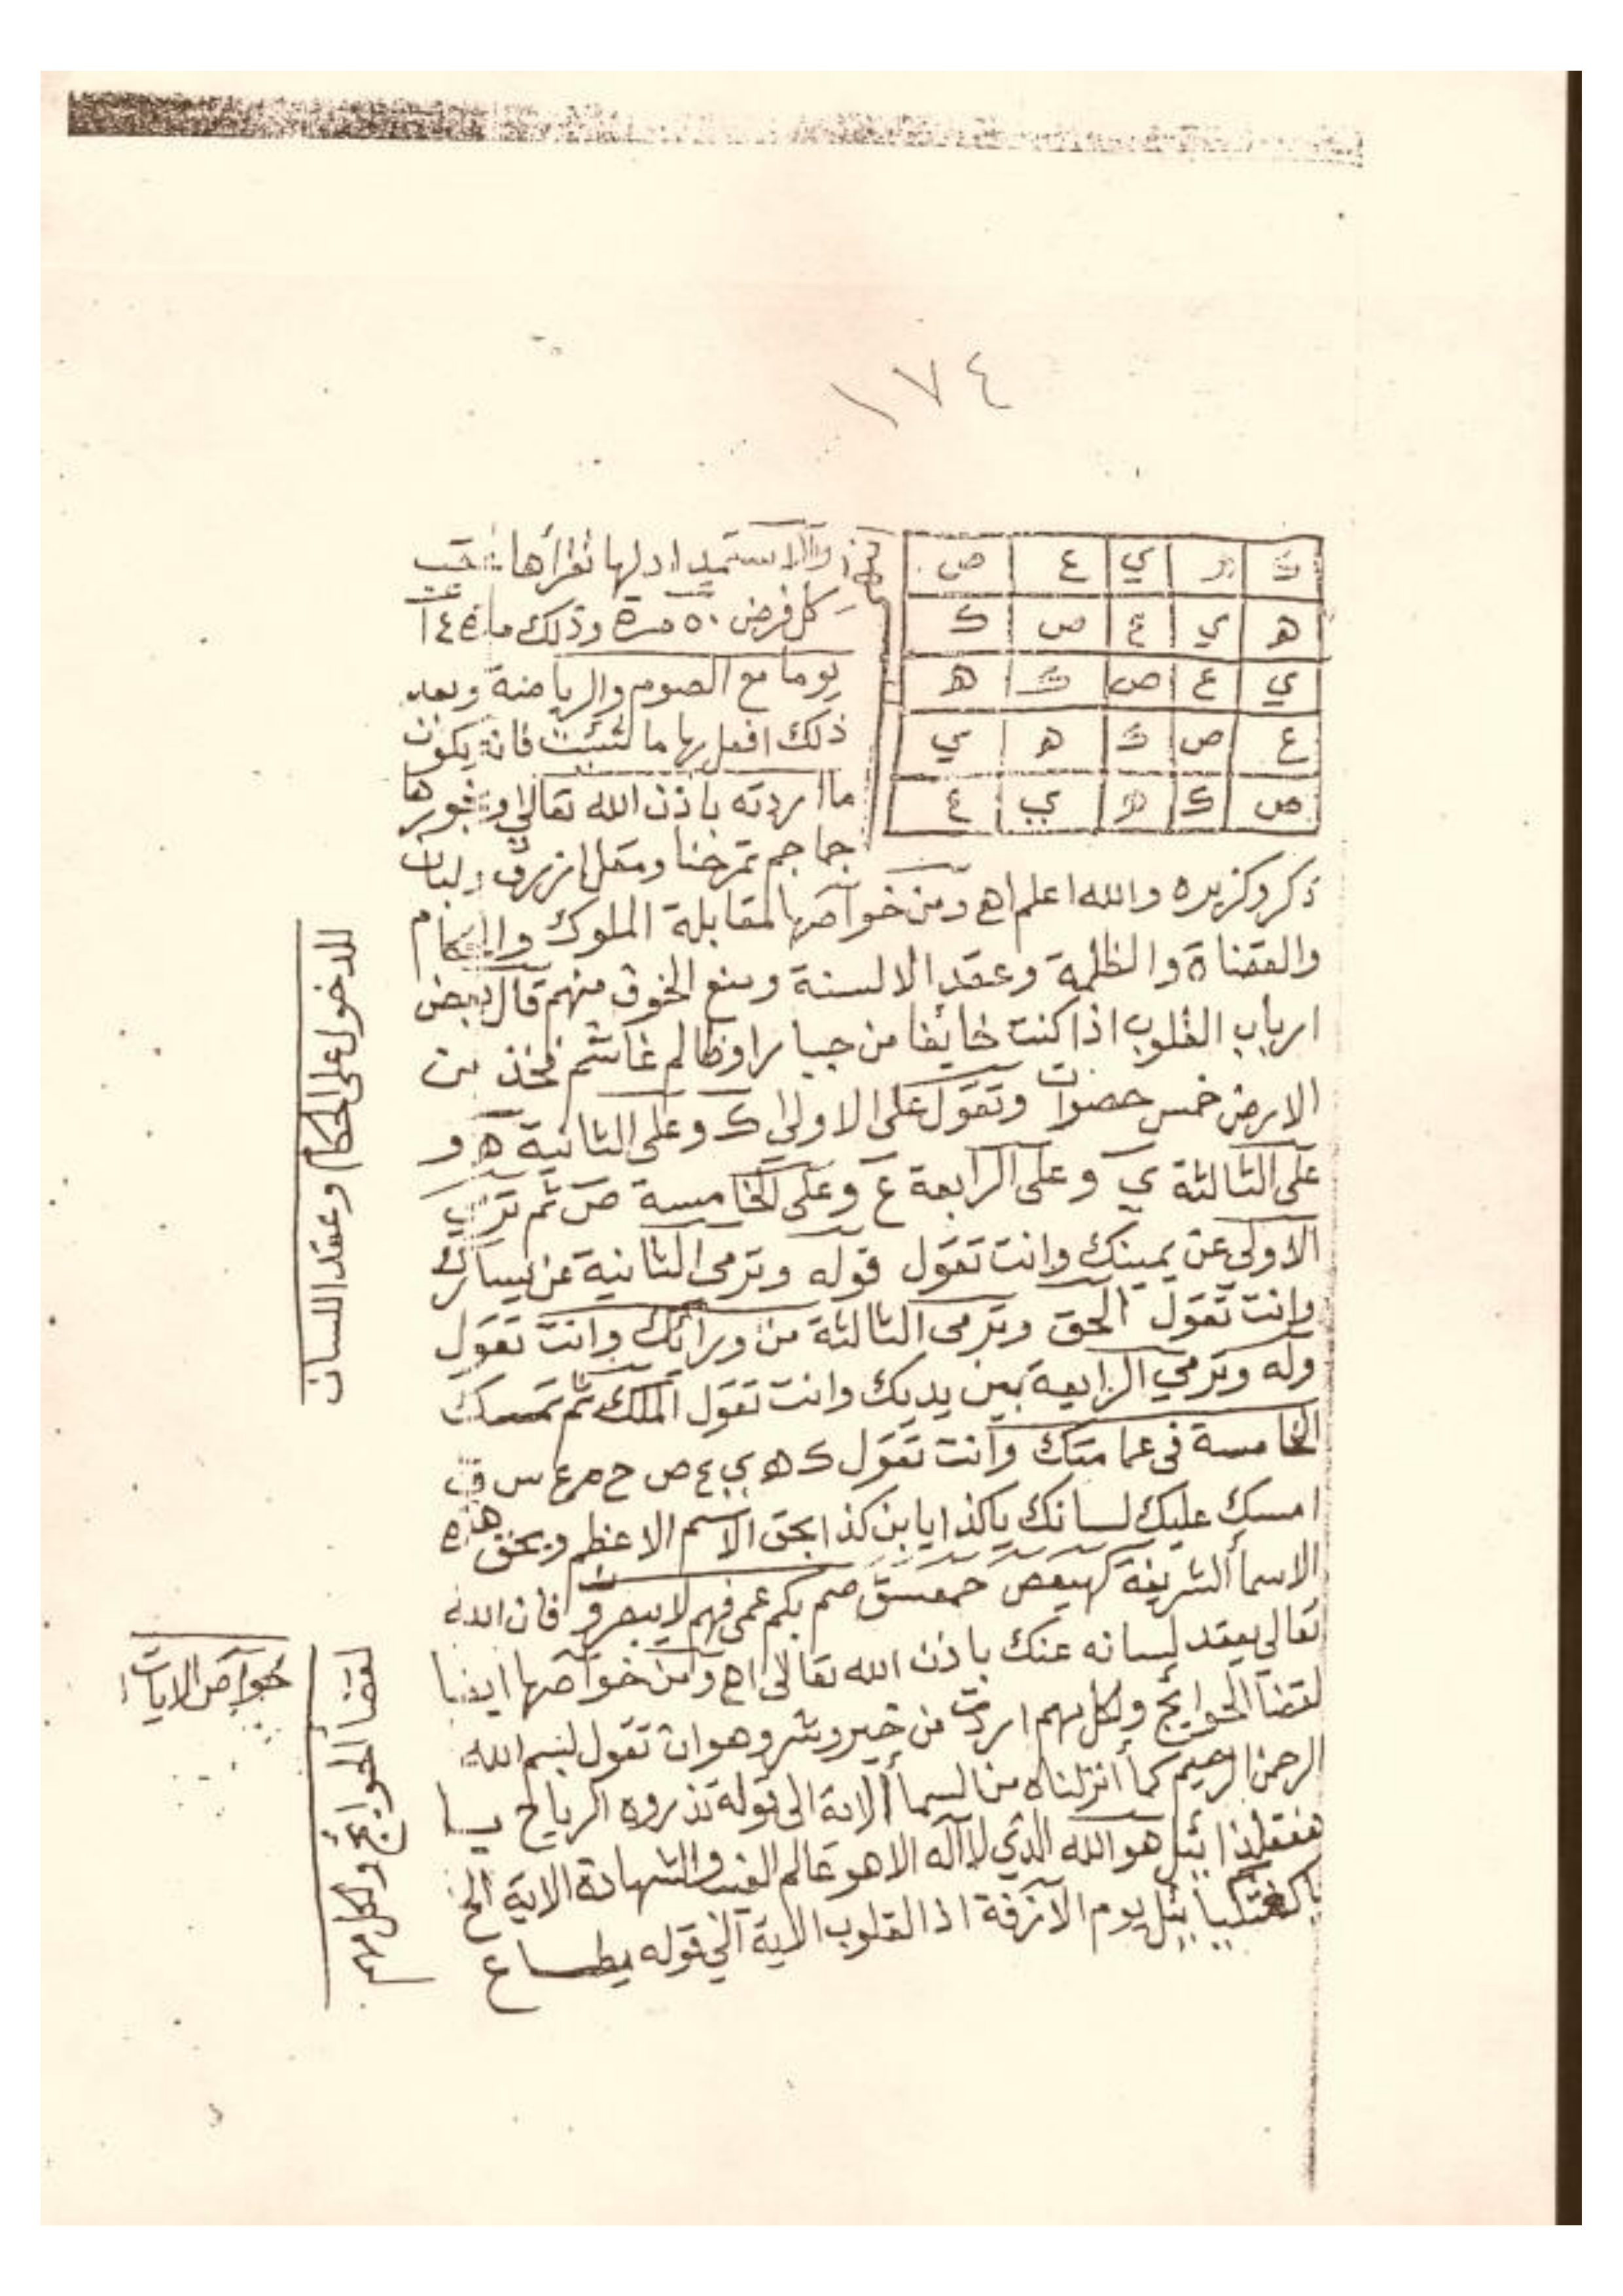 ١٧٤
ك ه ي ع ص
ه ي ع ص ك
ي ع ص ك ه
ع ص ك ه ي
ص ك ه ي ع
والاستمداد لها تقرأها عقب
كل فرض ٥٠ مرة وذلك مدة ٤١
يوما مع الصوم والرياضة وبعد
ذلك افعل بها ما شئت فانه يكون
ما اردته باذن الله تعالى وبخورها
جماجم تمرحنا ومقل ازرق ولبان
ذكر وكزبره والله اعلم اه ومن خواصها لمقابلة الملوك والحكام
والقضاة والظلمة وعقد الالسنة ومنع الخوف منهم قال بعض
ارباب القلوب اذا كنت خائفا من جبار او ظالم غاشم فخذ من
الارض خمس حصوات وتقول على الاولى ك وعلى الثانية ه و
على الثالثة ي وعلى الرابعة ع وعلى الخامسة ص ثم ترمي
الاولى عن يمينك وانت تقول قوله وترمى الثانية عن يسارك
وانت تقول الحق وترمى الثالثة من ورائك وانت تقول
وله وترمي الرابعة بين يديك وانت تقول الملك ثم تمسك
الخامسة فى عمامتك وانت تقول ك ه ي ع ص ح م ع س ق
امسك عليك لسانك ياكذا يابن كذا بحق الاسم الاعظم وبحق هذه
الاسما الشريفة كهيعص حمعسق صم بكم عمى فهم لا يبصرون فان الله
تعالى يعقد لسانه عنك باذن الله تعالى اه ومن خواصها ايضا
لقضا الحوائج ولكل مهم اردت من خير وشر وهو ان تقول بسم الله
الرحمن الرحيم كما أنزلناه من السمأ الاية الى قوله تذروه الرياح يا
هو الله الذي لا اله الا هو عالم الغيب والشهادة الاية الخ
يوم الآزفة اذ القلوب الاية الى قوله يطاع
للدخول على الحكام وعقد اللسان
لقضأ الحوائج ولكل مهم
خواص الايات